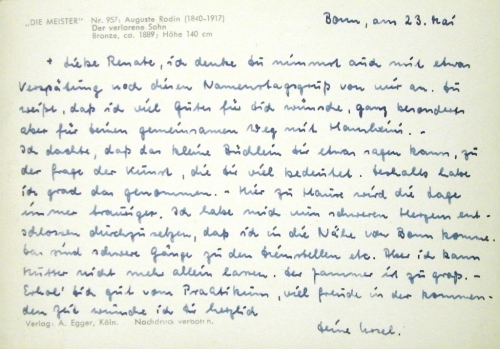 „DIE MEISTER" Nr. 957: Auguste Rodin (1840-1917)
Der verlorene Sohn
Bronze, ca. 1889; Höhe 140 cm
Bonn, am 23. Mai
Liebe Renate, ich denke du nimmst auch mit etwas
Verspätung noch diesen Namenstagsgruß von mir an. Du
weißt, daß ich viel Gutes für dich wünsche, ganz besonders
aber für deinen gemeinsamen Weg mit -
Ich dachte, daß das kleine Büchlein dir etwas sagen kann, zu
der Frage der Kunst, die dir viel bedeutet. Deshalb habe
ich grad das genommen. - Hier zu Hause wird die Lage
immer trauriger. Ich habe mich nun schweren Herzens ent-
schlossen durchzusetzen, daß ich in die Nähe von Bonn komme.
Das sind schwere Gänge zu den Dienststellen etc. Aber ich kann
Mutter nicht mehr allein lassen. Der Jammer ist zu groß. -
Erhol' dich gut vom Praktikum, viel Freude in der kommen-
den Zeit wünsche ich dir herzlich
Deine
Verlag: A. Egger, Köln. Nachdruck verboten.